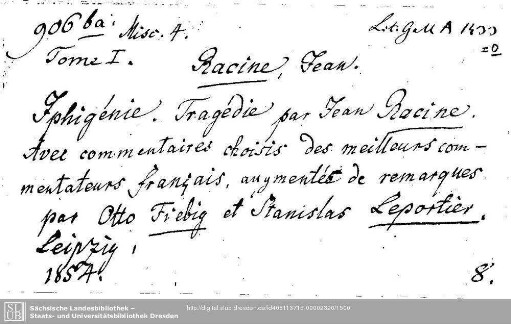 906 ba. Misc. 4. Lit. G.M A 1833
Tome I. Racine, Jean. =0
Iphigénie. Tragédie par Jean Racine.
Avec commentaires choisis des meilleurs com-
mentateurs français, augmentés de remarques
par Otto Fiebig et Stanislas Leportier.
Leipzig,
1854. 8.
SLUB Sächsische Landesbibliothek –
Staats- und Universitätsbibliothek Dresden